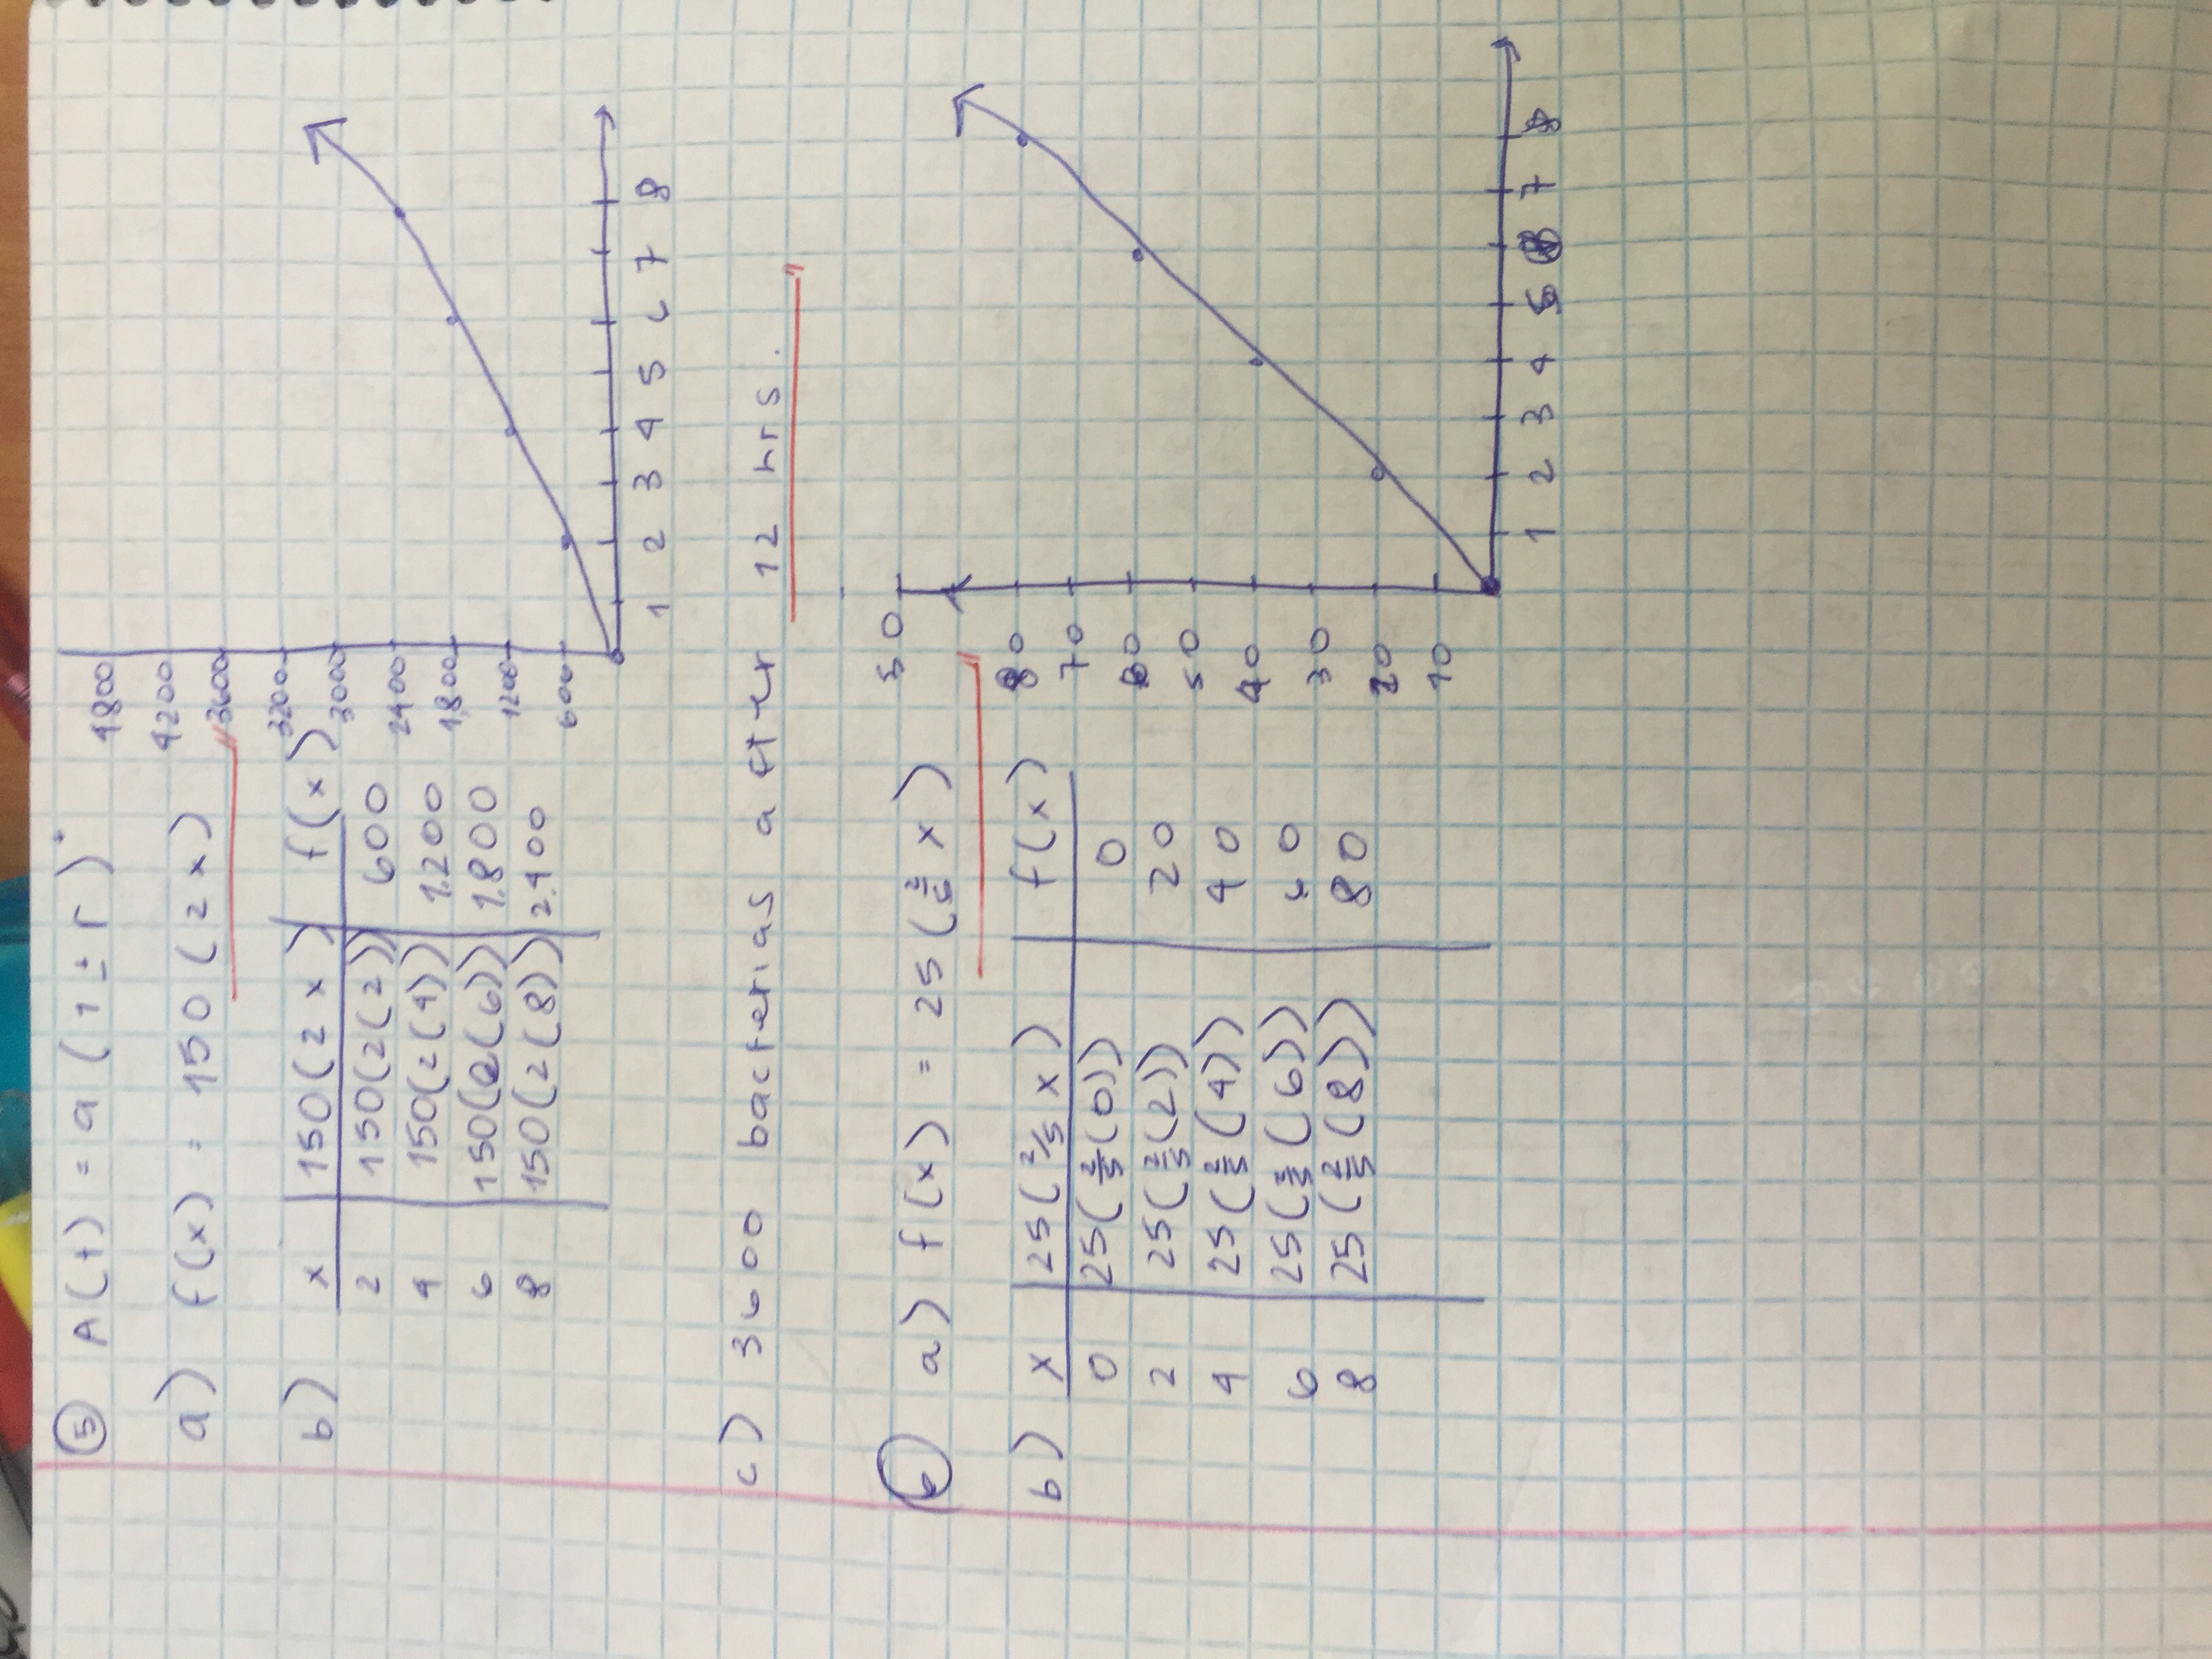 ⑤ A(t) = a(1 ± r)
a) f(x) = 150(2x)
b)
x | 150(2x) | f(x)
2 | 150(2(2)) | 600
4 | 150(2(4)) | 1.200
6 | 150(2(6)) | 1.800
8 | 150(2(8)) | 2.400
4800
4200
3600
3200
3000
2400
1.800
1200
600
1 2 3 4 5 6 7 8
c) 3600 bacterias after 12 hrs.
⑥ a) f(x) = 25(2/5 x)
b)
x | 25(2/5 x) | f(x)
0 | 25(2/5(0)) | 0
2 | 25(2/5(2)) | 20
4 | 25(2/5(4)) | 40
6 | 25(2/5(6)) | 60
8 | 25(2/5(8)) | 80
80
70
60
50
40
30
20
10
1 2 3 4 5 6 7 8